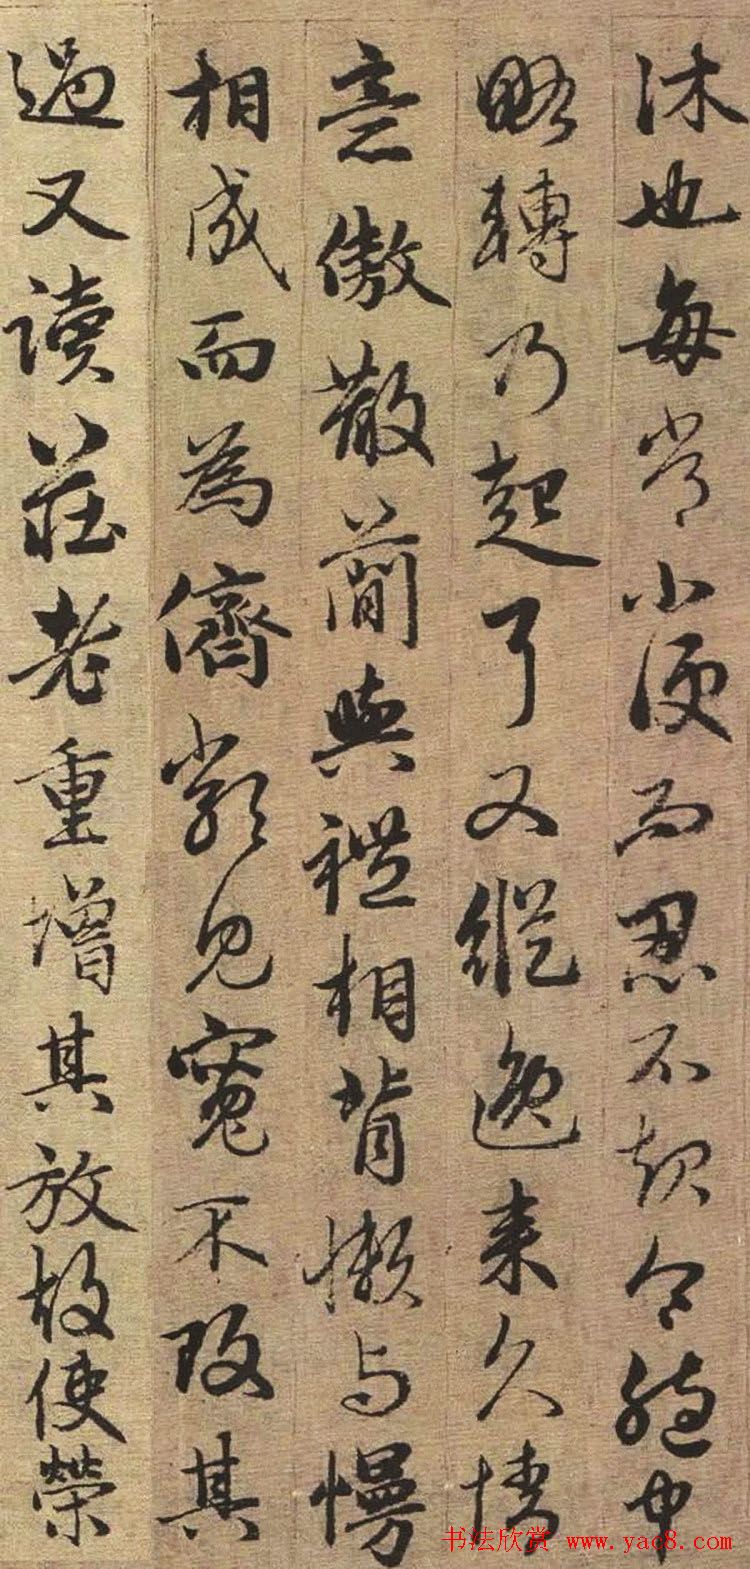 沐也每常小便而忍不起令胞中
略轉乃起耳又縱逸来久情
意傲散簡與禮相背懶与慢
相成而為儕類見寬不攻其
過又讀莊老重增其放故使榮
书法欣赏 www.yac8.com